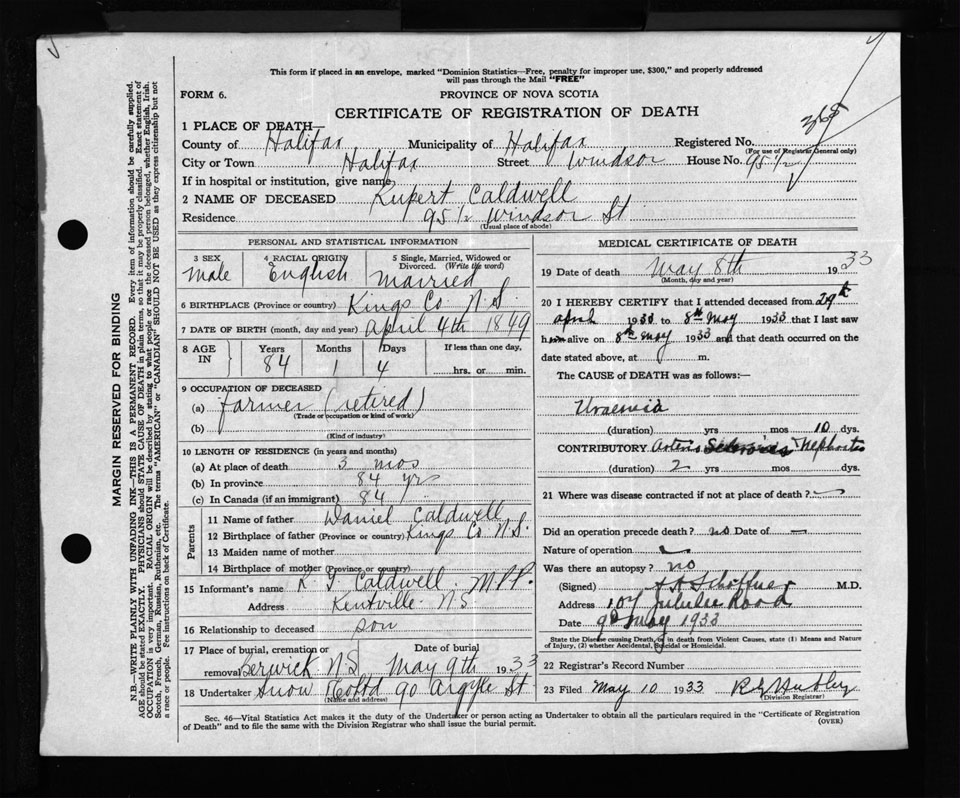 This form if placed in an envelope, marked "Dominion Statistics—Free, penalty for improper use, $300," and properly addressed
will pass through the Mail "FREE"
FORM 6.
PROVINCE OF NOVA SCOTIA
CERTIFICATE OF REGISTRATION OF DEATH
1 PLACE OF DEATH—
County of Halifax Municipality of Halifax Registered No.
(For use of Registrar General only)
City or Town Halifax Street Windsor House No. 95 1/2
If in hospital or institution, give name
2 NAME OF DECEASED Rupert Caldwell
Residence 95 1/2 Windsor St
(Usual place of abode)
PERSONAL AND STATISTICAL INFORMATION
3 SEX 4 RACIAL ORIGIN 5 Single, Married, Widowed or
Divorced. (Write the word)
Male English Married
6 BIRTHPLACE (Province or country) Kings Co N.S.
7 DATE OF BIRTH (month, day and year) April 4th 1849
8 AGE IN Years Months Days If less than one day,
84 1 4 hrs. or min.
9 OCCUPATION OF DECEASED
(a) farmer (retired)
(Trade or occupation or kind of work)
(b)
(Kind of industry)
10 LENGTH OF RESIDENCE (in years and months)
(a) At place of death 3 mos
(b) In province 84 yrs
(c) In Canada (if an immigrant) 84
Parents
11 Name of father Daniel Caldwell
12 Birthplace of father (Province or country) Kings Co N.S.
13 Maiden name of mother
14 Birthplace of mother (Province or country)
15 Informant's name Caldwell M.P.P.
Address Kentville N S
16 Relationship to deceased son
17 Place of burial, cremation or Date of burial
removal Berwick N.S May 9th 1933
18 Undertaker Snow & Co Ltd 90 Argyle St
(Name and address)
MEDICAL CERTIFICATE OF DEATH
19 Date of death May 8th 1933
(Month, day and year)
20 I HEREBY CERTIFY that I attended deceased from 29th
april 1933 to 8th May 1933 that I last saw
him alive on 8th May 1933 and that death occurred on the
date stated above, at m.
The CAUSE of DEATH was as follows:—
Uraemia
(duration) yrs mos 10 dys.
CONTRIBUTORY Arterio Sclerosis
(duration) 2 yrs mos dys.
21 Where was disease contracted if not at place of death?
Did an operation precede death? no Date of —
Nature of operation
Was there an autopsy? no
(Signed) M.D.
Address 107 Jubilee Road
Date 9th May 1933
State the Disease causing Death, or in death from Violent Causes, state (1) Means and Nature
of Injury, (2) whether Accidental, Suicidal or Homicidal.
22 Registrar's Record Number
23 Filed May 10 1933
(Division Registrar)
Sec. 46—Vital Statistics Act makes it the duty of the Undertaker or person acting as Undertaker to obtain all the particulars required in the "Certificate of Registration
of Death" and to file the same with the Division Registrar who shall issue the burial permit.
(OVER)
MARGIN RESERVED FOR BINDING
N.B.—WRITE PLAINLY WITH UNFADING INK—THIS IS A PERMANENT RECORD. Every item of information should be carefully supplied.
AGE should be stated EXACTLY. PHYSICIANS should STATE CAUSE OF DEATH in plain terms, so that it may be properly classified. Exact statement of
OCCUPATION is very important. RACIAL ORIGIN will be described by stating to what people or race the deceased person belonged, whether English, Irish,
Scotch, French, German, Russian, Ruthenian, etc. The terms "AMERICAN" or "CANADIAN" SHOULD NOT BE USED as they express citizenship but not
a race or people. See instructions on back of Certificate.